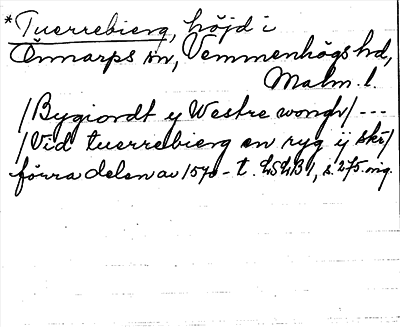 *Tuerrebierg, höjd i
Önnarps sn, Vemmenhögs hd,
Malm. l.
/Bygiordt y Westre wongh/ ---
/Vid tuerrebierg en ryg ij skå/
förra delen av 1570-t. LSLB 1, s. 275. orig.